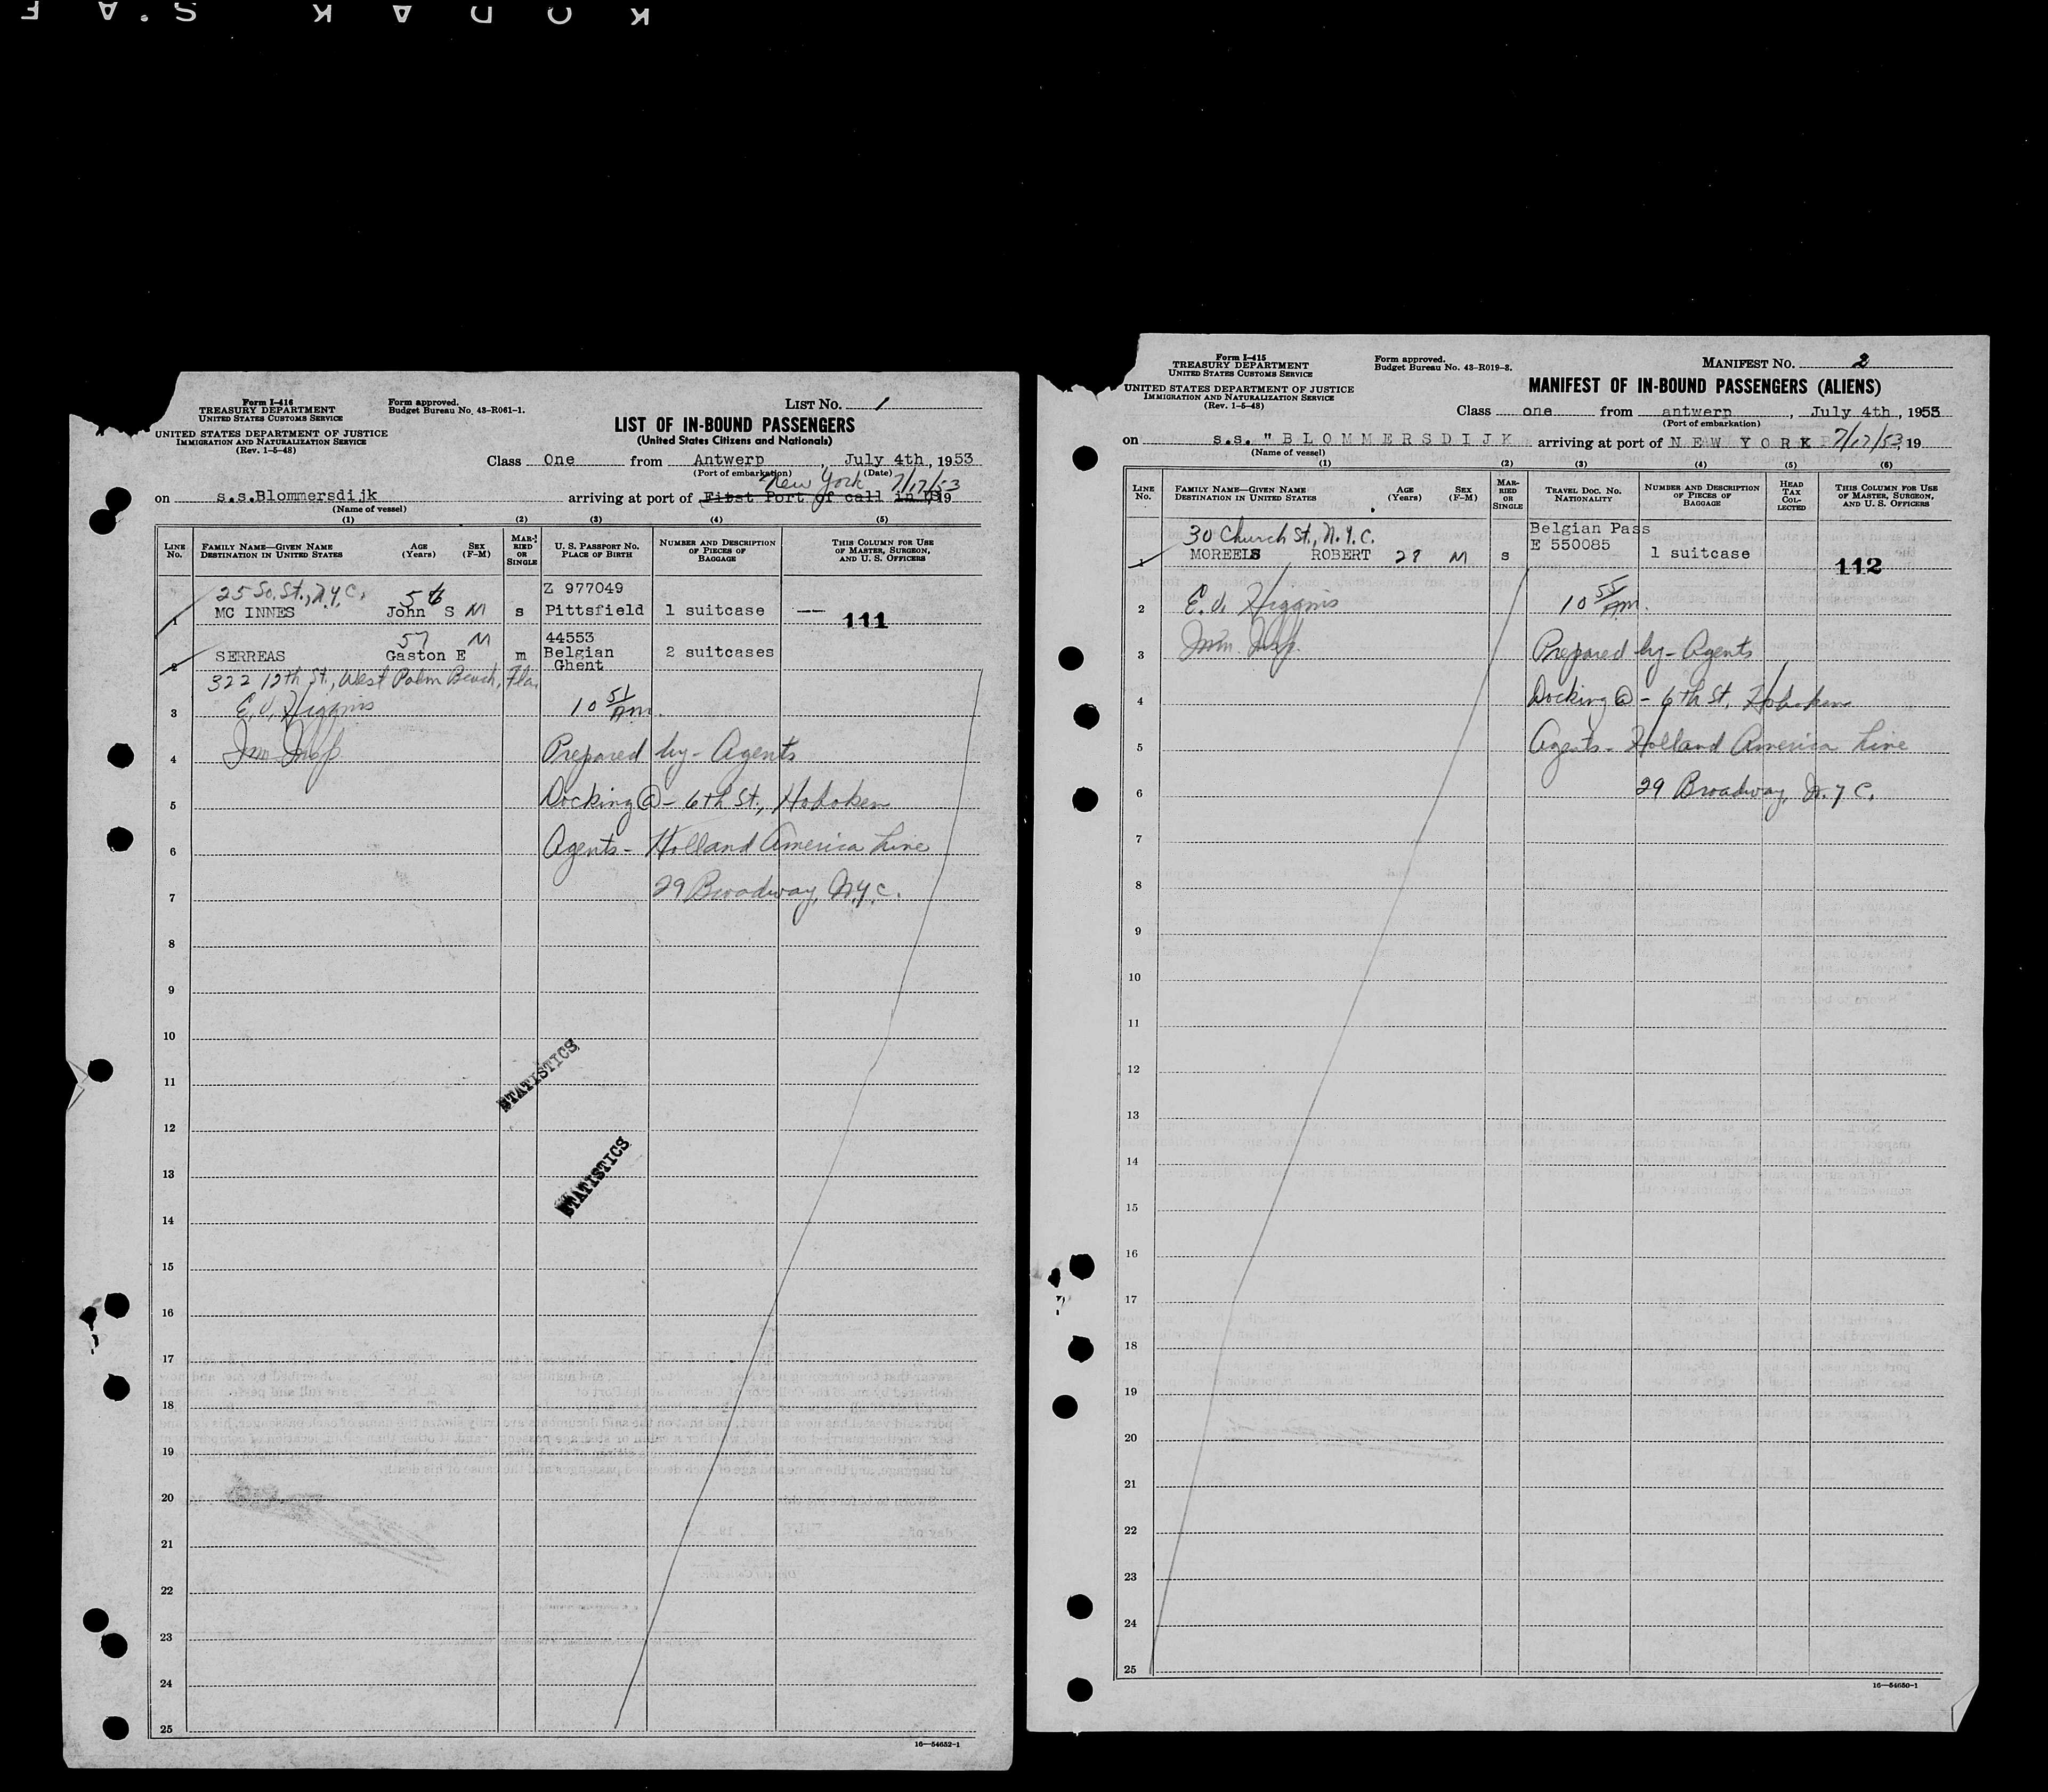 KODAK S.A.F
Form I-416
TREASURY DEPARTMENT
UNITED STATES CUSTOMS SERVICE
UNITED STATES DEPARTMENT OF JUSTICE
IMMIGRATION AND NATURALIZATION SERVICE
(Rev. 1-5-48)
Form approved.
Budget Bureau No. 43-R061-1.
LIST NO. 1
LIST OF IN-BOUND PASSENGERS
(United States Citizens and Nationals)
Class One from Antwerp, July 4th, 1953
(Port of embarkation) (Date)
New York 7/17/53
on s.s.Blommersdijk arriving at port of First Port of call in US, 19
(Name of vessel)
(1) (2) (3) (4) (5)
LINE No. FAMILY NAME—GIVEN NAME DESTINATION IN UNITED STATES AGE (Years) SEX (F-M) MARRIED OR SINGLE U. S. PASSPORT NO. PLACE OF BIRTH NUMBER AND DESCRIPTION OF PIECES OF BAGGAGE THIS COLUMN FOR USE OF MASTER, SURGEON, AND U. S. OFFICERS
25 So. St., N.Y.C. Z 977049
1 MC INNES John S M s Pittsfield 1 suitcase — 111
57 M 44553
2 SERREAS Gaston E m Belgian Ghent 2 suitcases
322 12th St., West Palm Beach, Fla.
3 E.J. Higgins 10 51 AM.
4 Imm. Insp. Prepared by - Agents
5 Docking @ - 6th St., Hoboken
6 Agents - Holland America Line
7 29 Broadway, N.Y.C.
8
9
10
11
STATISTICS
12
13
STATISTICS
14
15
16
17
18
19
20
21
22
23
24
25
16—54652-1
Form I-415
TREASURY DEPARTMENT
UNITED STATES CUSTOMS SERVICE
UNITED STATES DEPARTMENT OF JUSTICE
IMMIGRATION AND NATURALIZATION SERVICE
(Rev. 1-5-48)
Form approved.
Budget Bureau No. 43-R019-3.
MANIFEST NO. 2
MANIFEST OF IN-BOUND PASSENGERS (ALIENS)
Class one from antwerp, July 4th, 1953
(Port of embarkation)
on s.s. "BLOMMERSDIJK arriving at port of NEW YORK 7/17/53, 19
(Name of vessel)
(1) (2) (3) (4) (5) (6)
LINE No. FAMILY NAME—GIVEN NAME DESTINATION IN UNITED STATES AGE (Years) SEX (F-M) MARRIED OR SINGLE TRAVEL DOC. NO. NATIONALITY NUMBER AND DESCRIPTION OF PIECES OF BAGGAGE HEAD TAX COLLECTED THIS COLUMN FOR USE OF MASTER, SURGEON, AND U. S. OFFICERS
30 Church St., N.Y.C. Belgian Pass
E 550085
1 MOREELS ROBERT M s 1 suitcase 112
2 E.J. Higgins 10 55 AM.
3 Imm. Insp. Prepared by - Agents
4 Docking @ - 6th St., Hoboken
5 Agents - Holland America Line
6 29 Broadway, N.Y.C.
7
8
9
10
11
12
13
14
15
16
17
18
19
20
21
22
23
24
25
16—54650-1